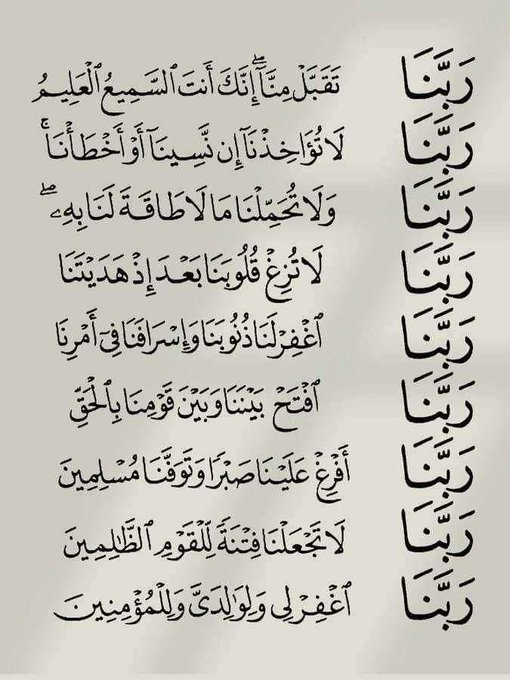 رَبَّنَا تَقَبَّلْ مِنَّآۖ إِنَّكَ أَنتَ ٱلسَّمِيعُ ٱلْعَلِيمُ
رَبَّنَا لَا تُؤَاخِذْنَآ إِن نَّسِينَآ أَوْ أَخْطَأْنَاۚ
رَبَّنَا وَلَا تُحَمِّلْنَا مَا لَا طَاقَةَ لَنَا بِهِۦۖ
رَبَّنَا لَا تُزِغْ قُلُوبَنَا بَعْدَ إِذْ هَدَيْتَنَا
رَبَّنَا ٱغْفِرْ لَنَا ذُنُوبَنَا وَإِسْرَافَنَا فِىٓ أَمْرِنَا
رَبَّنَا ٱفْتَحْ بَيْنَنَا وَبَيْنَ قَوْمِنَا بِٱلْحَقِّ
رَبَّنَا أَفْرِغْ عَلَيْنَا صَبْرًا وَتَوَفَّنَا مُسْلِمِينَ
رَبَّنَا لَا تَجْعَلْنَا فِتْنَةً لِّلْقَوْمِ ٱلظَّٰلِمِينَ
رَبَّنَا ٱغْفِرْ لِى وَلِوَٰلِدَىَّ وَلِلْمُؤْمِنِينَ